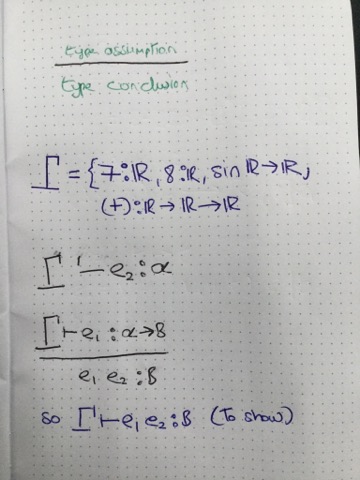 type assumption
type conclusion
Γ = {7:ℝ, 8:ℝ, sin ℝ→ℝ,
(+):ℝ→ℝ→ℝ
Γ ⊢ e₂:α
Γ ⊢ e₁:α→β
e₁ e₂:β
so Γ ⊢ e₁ e₂:β (To show)